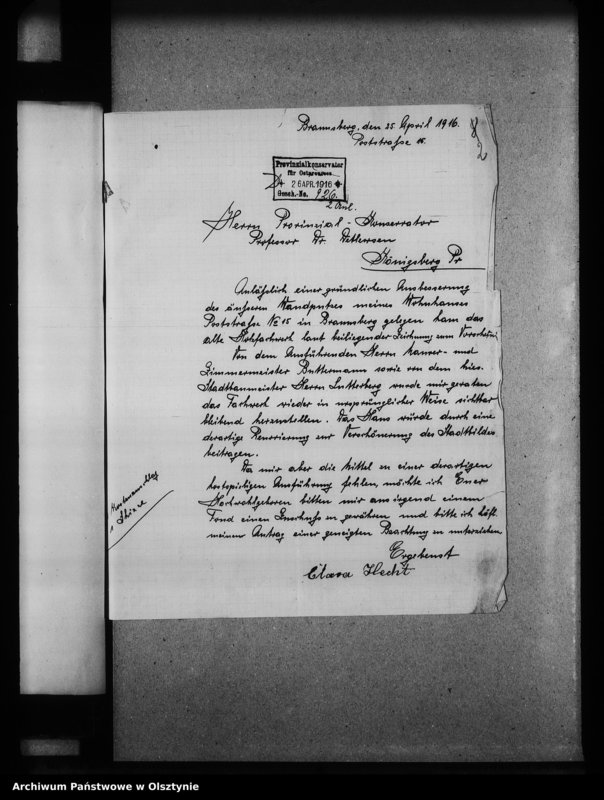 Braunsberg, den 25. April 1916.
Poststraße 15.
2
Provinzialkonservator
für Ostpreussen
26 APR. 1916
Gesch.-No. 926.
2 Anl.
Herrn Provinzial-Konservator
Professor Dr. Dethlefsen
Königsberg Pr
Anläßlich einer gründlichen Ausbesserung
des äußeren Wandputzes meines Wohnhauses
Poststraße No 15 in Braunsberg gelegen kam das
alte Holzfachwerk laut beiliegender Zeichnung zum Vorschein.
Von dem Ausführenden Herrn Maurer- und
Zimmermeister Buttermann sowie von dem hies.
Stadtbaumeister Herrn Lutterberg wurde mir geraten
das Fachwerk wieder in ursprünglicher Weise sichtbar
bleibend herzustellen. Das Haus würde durch eine
derartige Renovierung zur Verschönerung des Stadtbildes
beitragen.
Da mir aber die Mittel zu einer derartigen
kostspieligen Ausführung fehlen, möchte ich Euer
Hochwohlgeboren bitten mir aus irgend einem
Fond einen Zuschuß zu gewähren und bitte ich höfl.
meinen Antrag einer geneigten Beachtung zu unterziehen.
Kostenanschlag
1 Skizze
Ergebenst
Clara Hecht
Archiwum Państwowe w Olsztynie